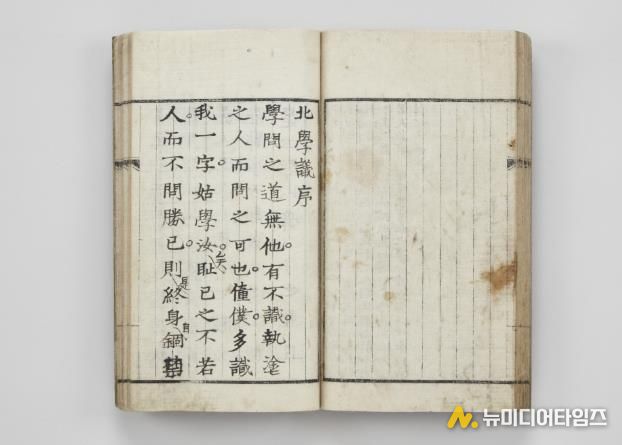 北學議序
學問之道無他。有不識。執塗
之人而問之可也。僮僕。多識
我一字。姑學汝。矣恥己之不若
人。而不問勝己。則是終身自錮
뉴미디어타임즈